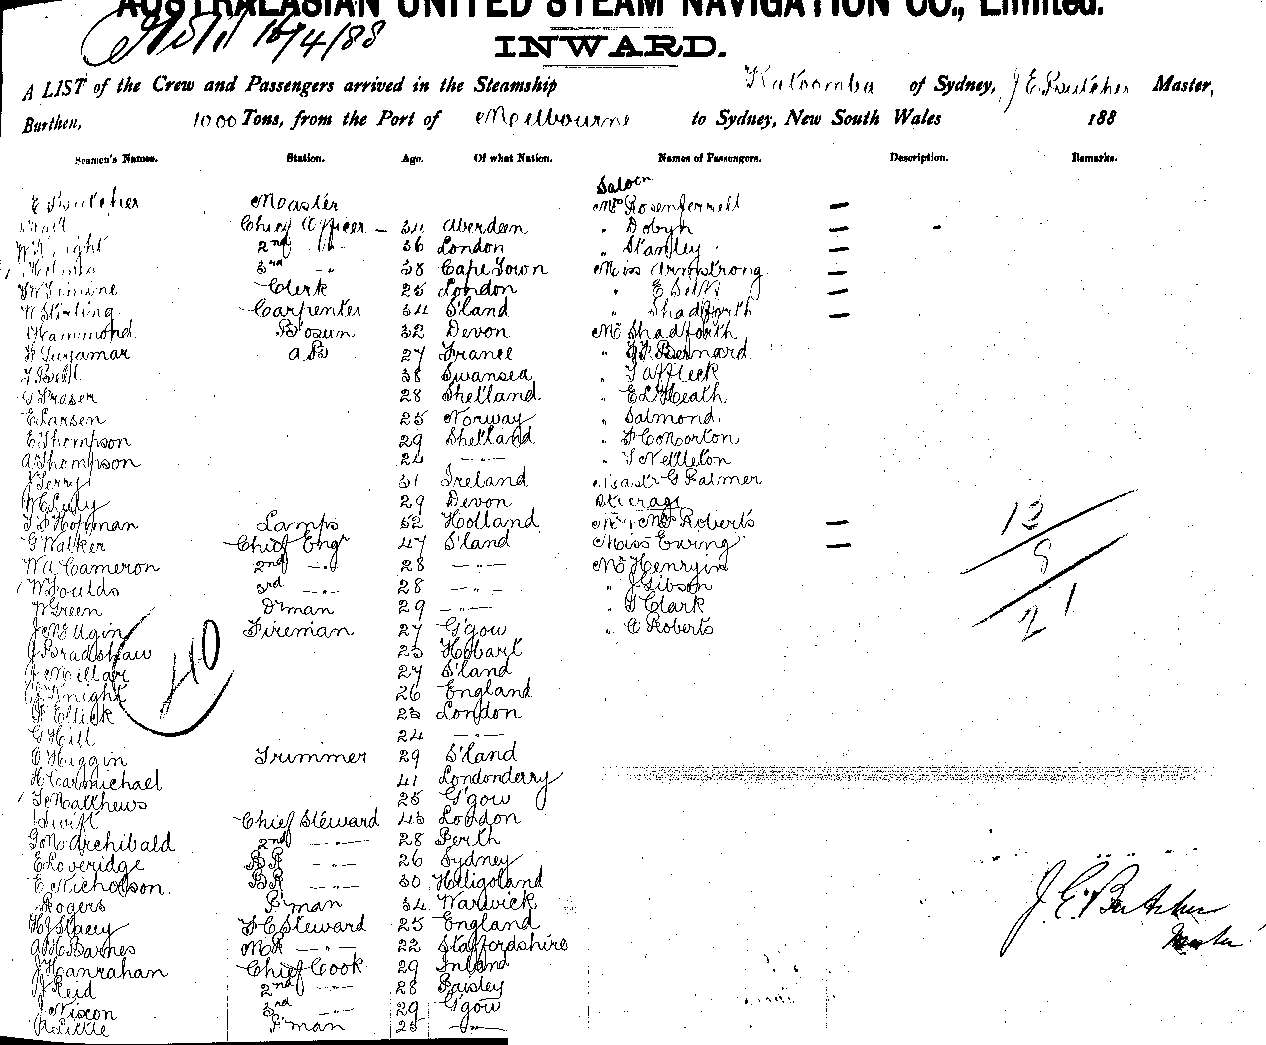 AUSTRALASIAN UNITED STEAM NAVIGATION CO., Limited.
16/4/88
INWARD.
A LIST of the Crew and Passengers arrived in the Steamship Katoomba of Sydney, J E Butcher Master,
Burthen, 1000 Tons, from the Port of Melbourne to Sydney, New South Wales 188
Seamen's Names. Station. Age. Of what Nation. Names of Passengers. Description. Remarks.
Saloon
E Butcher Master Mrs Rosenferrell —
Chief Officer - 34 Aberdeen " Dobyn —
2nd " 36 London " Stanley —
3rd " 38 Cape Town Miss Armstrong —
Clerk 25 London " E —
W Stirling Carpenter 34 S'land " Shadforth —
Hammond Bosun 32 Devon Mr Shadforth
AB 27 France " Bernard
T Bell 38 Swansea " T Affleck
Fraser 28 Shetland " E L Heath
E Larsen 25 Norway " Salmond
E Thompson 29 Shetland " Norton
A Thompson 24 " " T Nettleton
J Terry 31 Ireland Mastr G Palmer
29 Devon Steerage
Hoffman Lamps 52 Holland Mr & Mrs Roberts — 13
G Walker Chief Engr 47 S'land Miss Ewing — 8
W A Cameron 2nd " 28 " Mr Henryin 21
W Foulds 3rd " 28 " " J Gibson
W Green D'man 29 " " T Clark
Fireman 27 G'gow " A Roberts
J Bradshaw 40 23 Hobart
J Millar 27 S'land
Knight 26 England
23 London
G Hill 24 "
Higgin Trimmer 29 S'land
H Carmichael 41 Londonderry
T Matthews 25 G'gow
Swift Chief Steward 43 London
Archibald 2nd " 28 Perth
E Loveridge BR " 26 Sydney
E Nicholson BR " 30 Heligoland
Rogers P'man 34 Warwick J. E. Butcher
H J Stacy F C Steward 25 England Master
A H Barnes MR " 22 Staffordshire
J Hanrahan Chief Cook 29 Inland
J Reid 2nd " 28 Paisley
J Nixon 3rd " 29 G'gow
R Little P'man 25 "